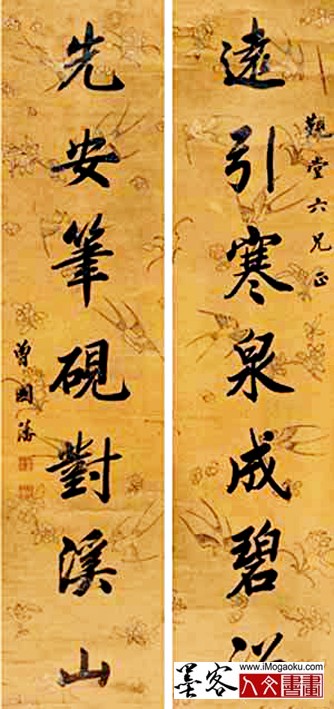 堂六兄正
遠引寒泉成碧
先安筆硯對溪山
曾國藩
墨客
www.iMogaoku.com
人文書畫